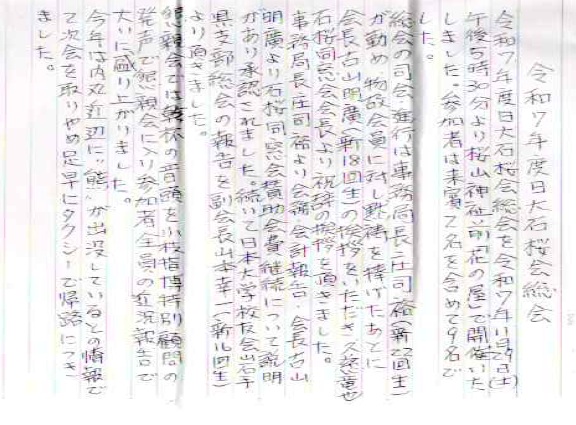 令和7年度日大石桜会総会
令和7年度日大石桜会総会を令和7年11月29日(土)
午後5時30分より桜山神社前「花の屋」で開催いた
しました。参加者は来賓2名を含めて9名で
した。
総会の司会・進行は事務局長庄司裕(新22回生)
が勤め物故会員に対し黙祷を捧げたあとに
会長古山明廣(新18回生)の挨拶をいただき久慈竜也
石桜同窓会会長より祝辞の挨拶を頂きました。
事務局長庄司裕より会務会計報告、会長古山
明廣より石桜同窓会賛助会費継続について説明
があり承認されました。続いて日本大学校友会岩手
県支部総会の報告を副会長山本幸一(新16回生)
より頂きました。
懇親会では乾杯の音頭を小枝指博特別顧問の
発声で懇親会に入り参加者全員の近況報告で
大いに盛り上がりました。
今年は内丸近辺に"熊"が出没しているとの情報で
て次会を取りやめ足早にタクシーで帰路につき
ました。